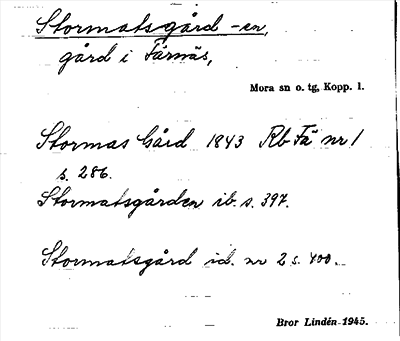 Stormatsgård -en,
gård i Färnäs,
Mora sn o. tg, Kopp. l.
Stormas Gård 1843 Rb Fä nr 1
s. 286.
Stormatsgården ib. s. 397.
Stormatsgård id. nr 2 s. 400.
Bror Lindén 1945.